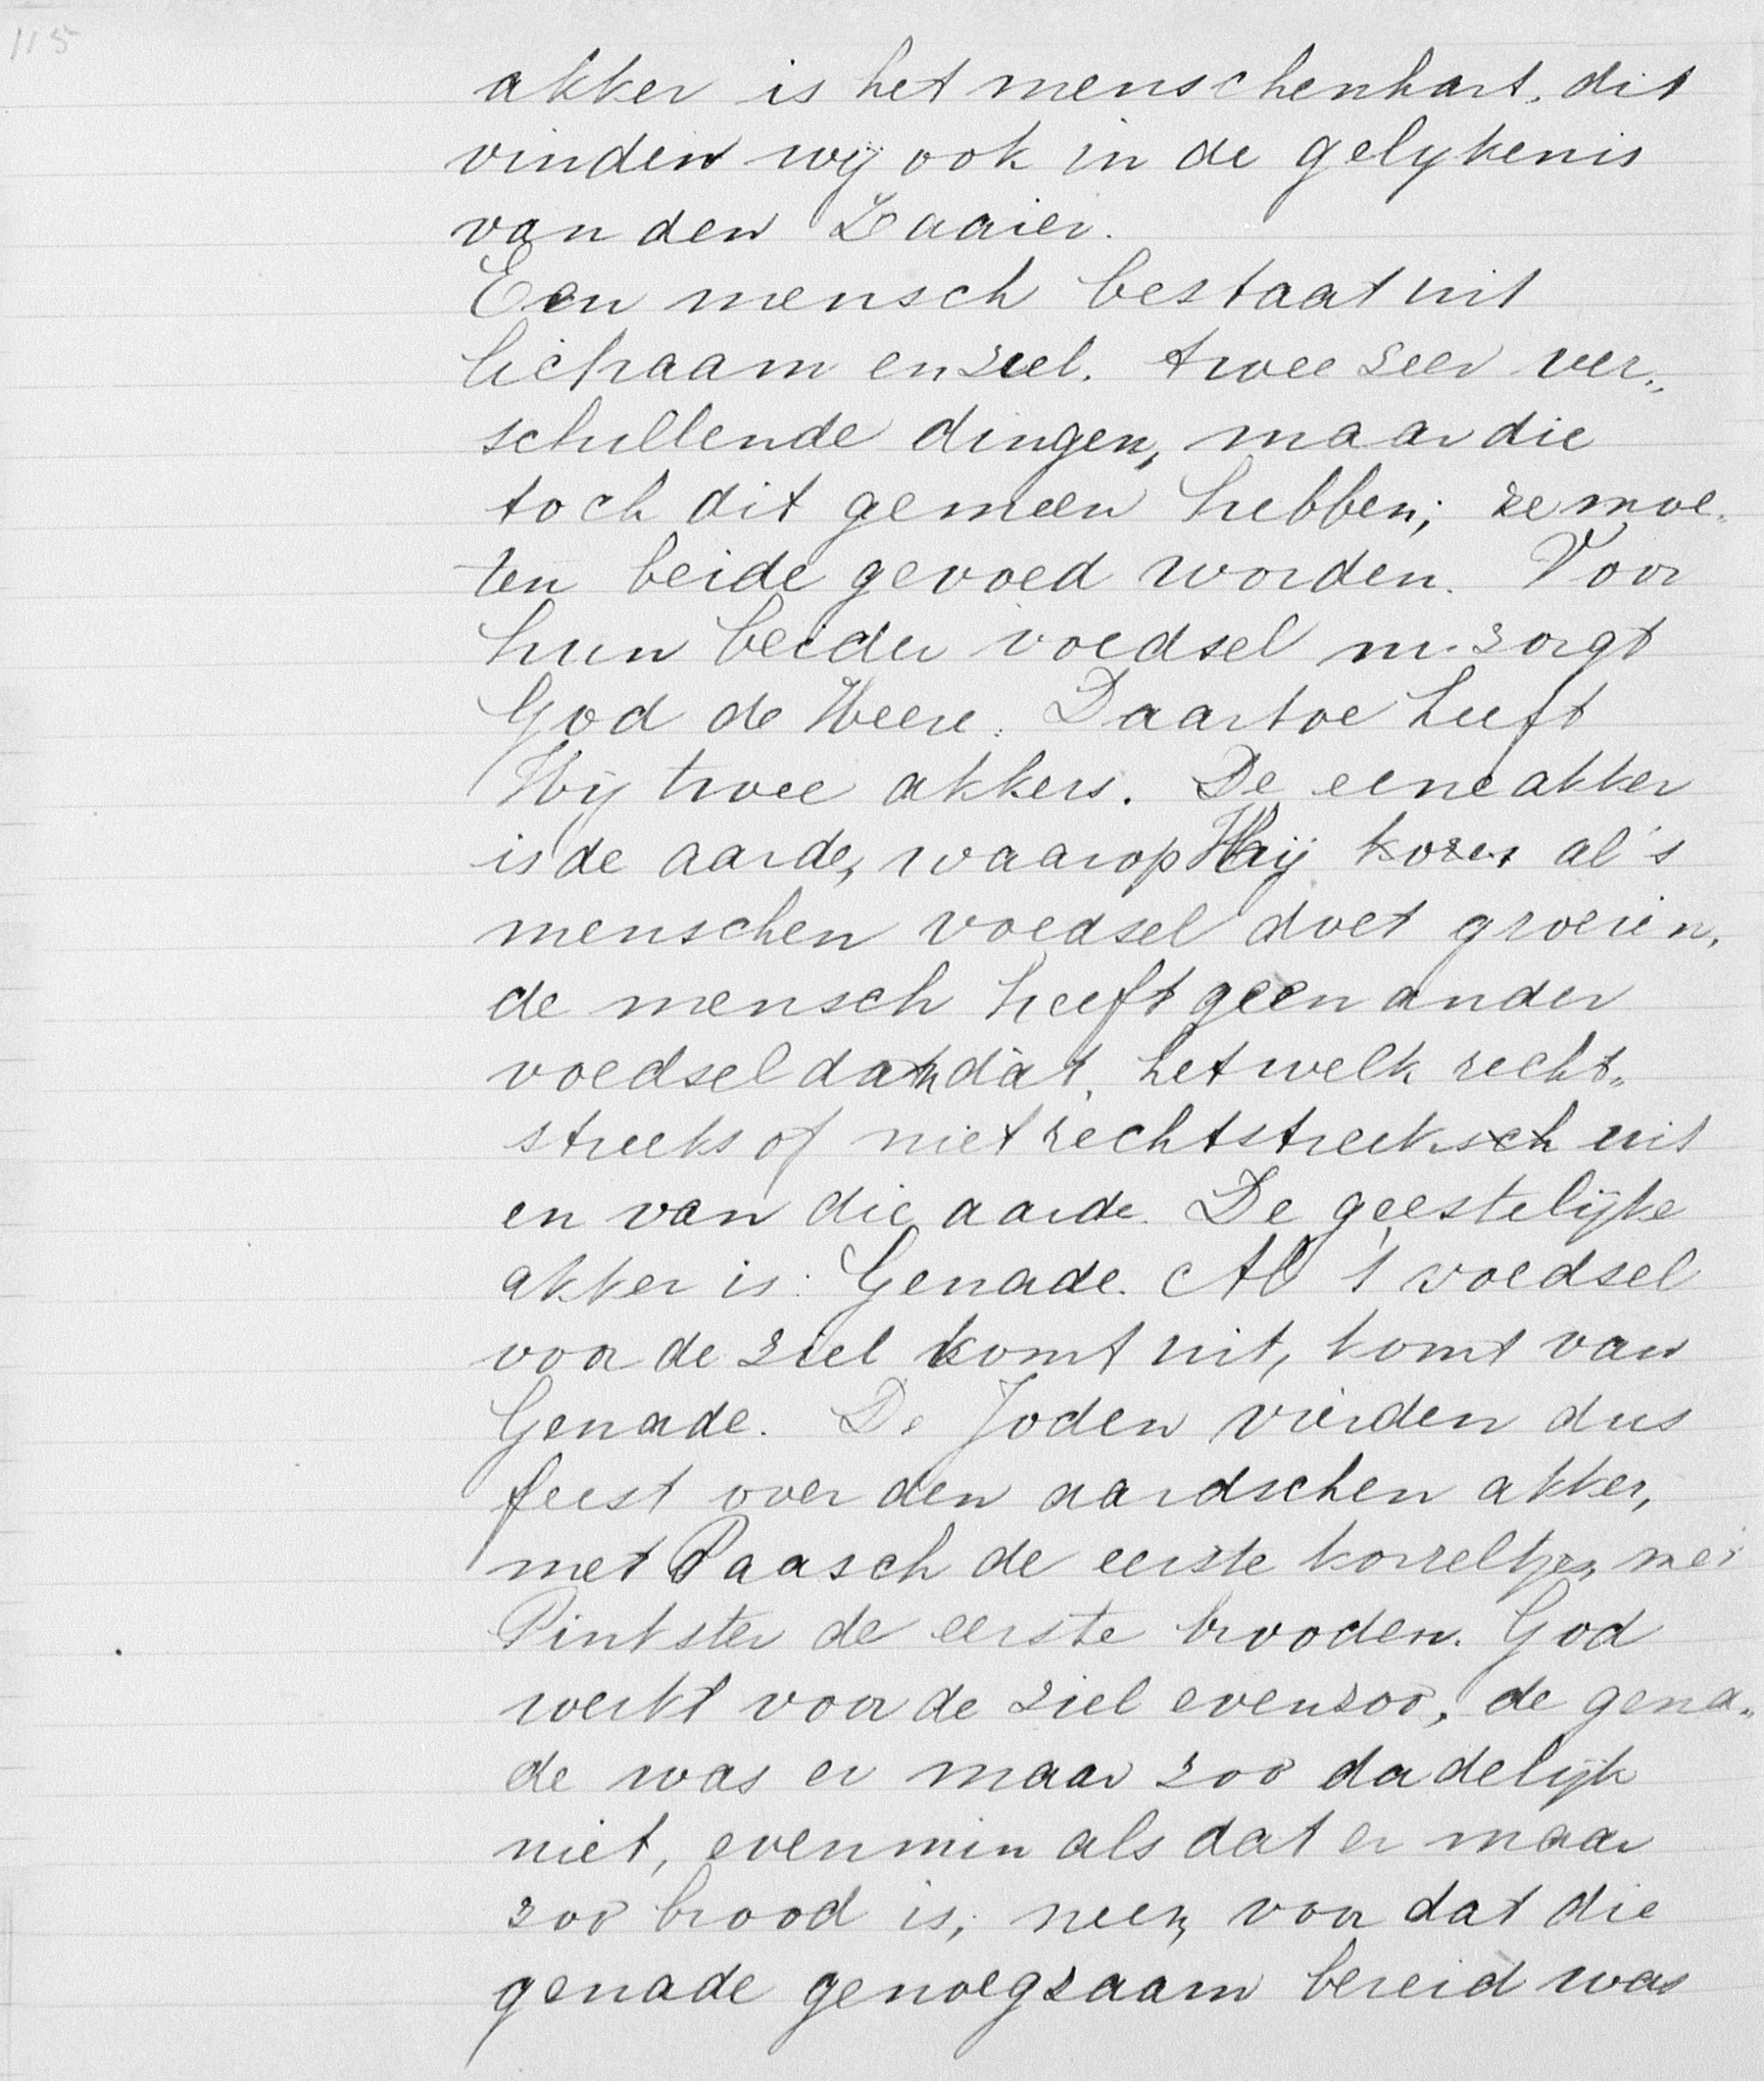 115
akker is het menschenhart, dit
vinden wij ook in de gelykenis
van den Zaaier.
Een mensch bestaat uit
lichaam en ziel. twee zeer ver„
schillende dingen, maar die
toch dit gemeen hebben; ze moe„
ten beide gevoed worden. Voor
hun beider voedsel nu zorgt
God de Heere. Daartoe heeft
Hij twee akkers. De eene akker
is de aarde, waarop Hij al 's
menschen voedsel doet groeien,
de mensch heeft geen ander
voedsel dan dàt, hetwelk recht„
streeks of niet rechtstreeks uit
en van die aarde. De geestelijke
akker is: Genade. Al 't voedsel
voor de ziel komt uit, komt van
Genade. De Joden vierden dus
feest over den aardschen akker,
met Paasch de eerste korreltjes, met
Pinkster de eerste brooden. God
werkt voor de ziel evenzoo, de gena„
de was er maar zoo dadelijk
niet, evenmin als dat er maar
zoo brood is; neen, voor dat die
genade genoegzaam bereid was